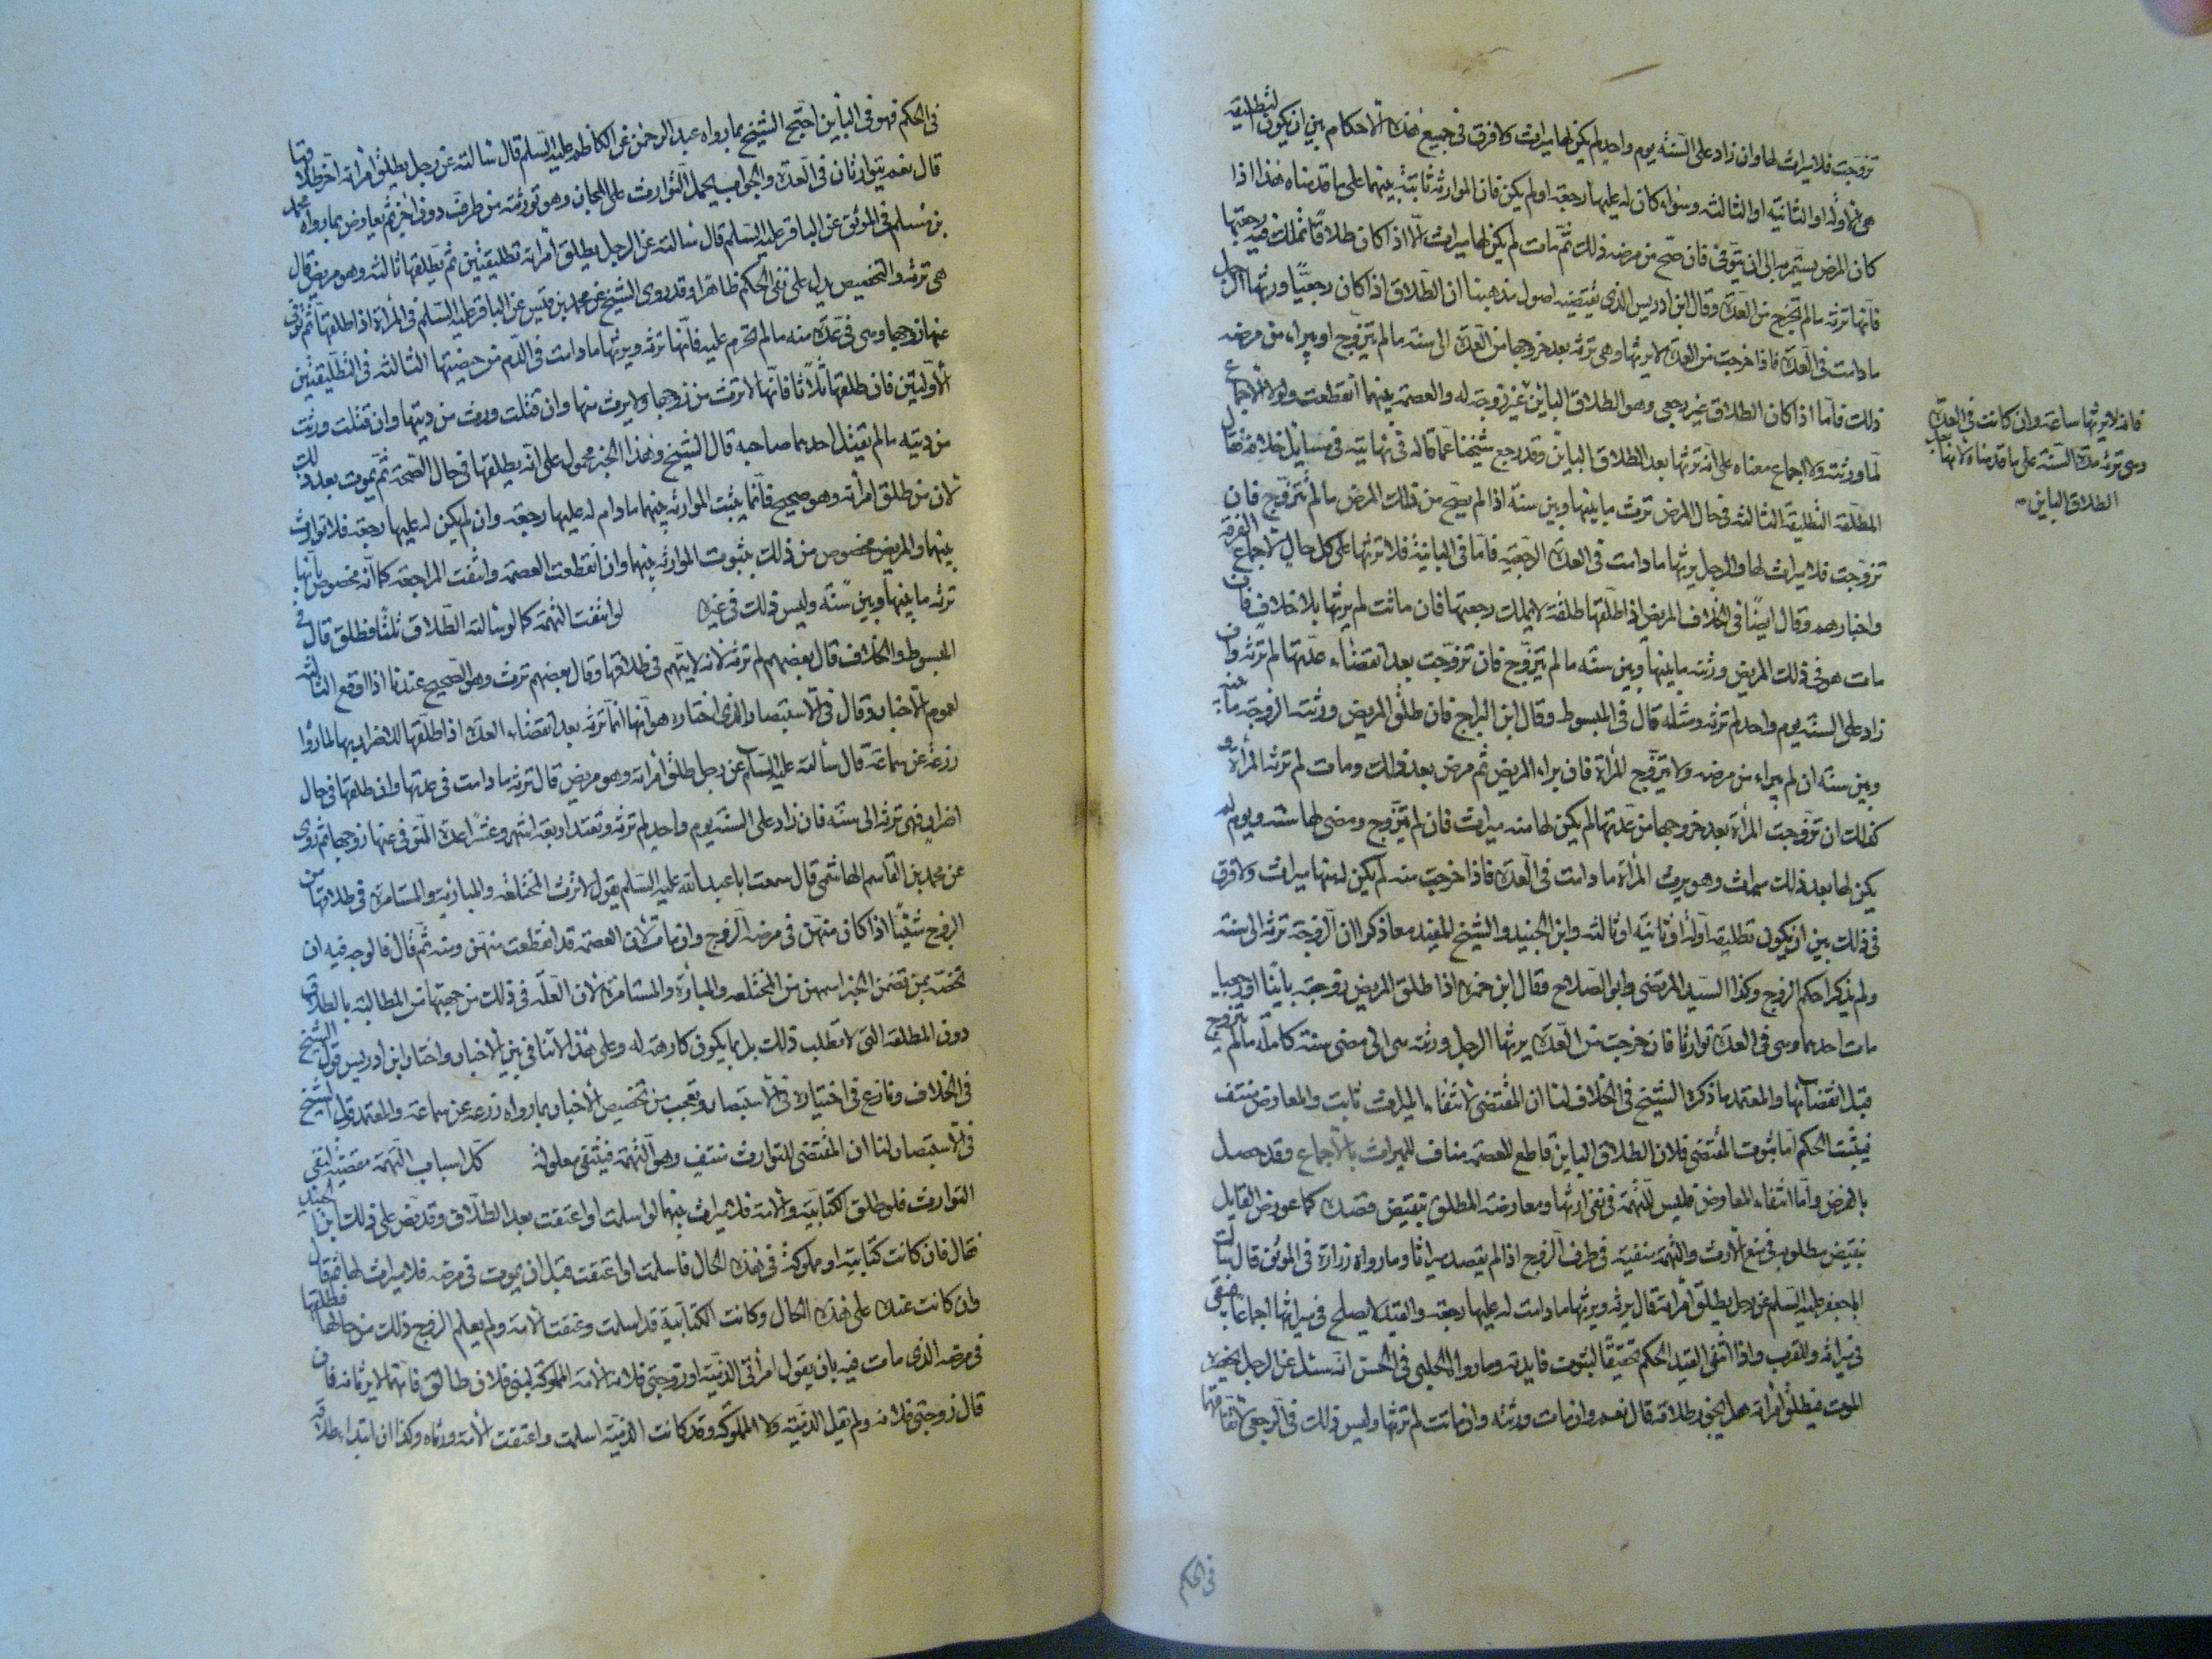 تزوجت فلا ميراث لها وان زاد على السنة يوم واحد لم يكن لها ميراث ولا فرق في جميع هذه الاحكام بين ان يكون التطليقة
هي الاوله او الثانيه او الثالثه وسواء كان له عليها رجعة او لم يكن فان الموارثه ثابتة بينهما على ما قدمناه هذا اذا
كان المرض يستمر به الى ان يتوفى فان صح من مرضه ذلك ثم مات لم يكن لها ميراث الا اذا كان طلاقا تملك فيه رجعتها
فانها ترثه ما لم تخرج من العدة وقال ابن ادريس الذي يقتضيه اصول مذهبنا ان الطلاق اذا كان رجعيا ورثها الرجل
ما دامت في العدة فاذا خرجت من العدة لا يرثها وهي ترثه بعد خروجها من العدة الى سنة ما لم تتزوج او يبراء من مرضه
ذلك فاما اذا كان الطلاق غير رجعي وهو الطلاق الباين
فانه لا يرثها ساعة وان كانت في العدة
وهي ترثه مدة السنة على ما قدمناه لانها بعد
الطلاق الباين
غير زوجة له والعصمة بينهما انقطعت ولولا الاجماع
لما ورثته ولا اجماع معناه على انه ترثها بعد الطلاق الباين وقد رجع شيخنا عما قاله في نهايته في مسايل خلافه فقال
المطلقة التطليقة الثالثة في حال المرض ترث ما بينها وبين سنة اذا لم يصح من ذلك المرض ما لم تتزوج فان
تزوجت فلا ميراث لها والرجل يرثها ما دامت في العدة الرجعية فاما في البائنة فلا ترثها على كل حال لاجماع الفرقة
واخبارهم وقال ايضا في الخلاف المريض اذا طلقها طلقة لا يملك رجعتها فان ماتت لم يرثها بلا خلاف فان
مات هو في ذلك المرض ورثته ما بينها وبين سنة ما لم تتزوج فان تزوجت بعد انقضاء عدتها لم ترثه وان
زاد على السنة يوم واحد لم ترثه ومثله قال في المبسوط وقال ابن البراج فان طلق المريض ورثته الزوجة ما بينه
وبين سنة ان لم يبراء من مرضه ولا تتزوج المرأة فان براء المريض ثم مرض بعد ذلك ومات لم ترثه المرأة و
كذلك ان تزوجت المرأة بعد خروجها من عدتها لم يكن لها منه ميراث فان لم تتزوج ومضى لها سنة ويوم لم
يكن لها بعد ذلك ميراث وهو يرث المرأة ما دامت في العدة فاذا خرجت منه لم يكن له منها ميراث ولا فرق
في ذلك بين ان يكون تطليقه اوله او ثانيه او ثالثه وابن الجنيد والشيخ المفيد معا ذكرا ان الزوجة ترثه الى سنة
ولم يذكرا حكم الزوج وكذا السيد المرتضى وابو الصلاح وقال ابن حمزة اذا طلق المريض زوجته باينا او رجعيا
مات احدهما وهي في العدة توارثا فان خرجت من العدة يرثها الرجل ورثته هي الى مضى سنة كاملة ما لم تتزوج
قبل انقضائها والمعتمد ما ذكره الشيخ في الخلاف لنا ان المقتضى لانتفاء الميراث ثابت والمعارض منتف
فيثبت الحكم اما ثبوت المقتضى فلان الطلاق الباين قاطع للعصمة مناف للميراث بالاجماع وقد حصل
بالفرض واما انتفاء المعارض فليس للتهمة في نفي ارثها ومعارضة المطلق بنقيض قصده كما عورض القايل
بنقيض مطلوبه في منع الارث والتهمة منفية في طرف الزوج اذا لم يقصد ميراثا وما رواه زرارة في الموثق قال سألت
ابا جعفر عليه السلم عن رجل يطلق امرأته قال يرثه ويرثها ما دامت له عليها رجعة والقيد لا يصلح في ميراثها اجماعا فبقى
في ميراثه وللقرب واذا انتفى القيد الحكم تحقيقا لثبوت فايدته وما رواه الحلبي في الحسن انه سئل عن الرجل يحضره
الموت فيطلق امرأته هل يجوز طلاقه قال نعم وان مات ورثته وان ماتت لم ترثها وليس ذلك في الرجعي لاتفاقهما
في الحكم
في الحكم فهو في البائن احتج الشيخ بما رواه عبد الرحمن عن الكاظم عليه السلم قال سالته عن رجل يطلق امرأته آخر طلاقها
قال نعم يتوارثان في العدة والجواب يحمل التوارث على المجاز وهو توريثه من طرف دون آخر ثم يعارض بما رواه محمد
بن مسلم في الموثق عن الباقر عليه السلم قال سالته عن الرجل يطلق امرأته تطليقتين ثم يطلقها ثالثة وهو مريض قال
هي ترثه والتخصيص يدل على نفي الحكم ظاهرا وقد روى الشيخ عن محمد بن قيس عن الباقر عليه السلم في المرأة اذا طلقها ثم توفى
عنها زوجها وهي في عدة منه ما لم تحرم عليه فانها ترثه ويرثها ما دامت في الدم من حيضتها الثالثة في التطليقتين
الاولتين فان طلقها ثلاثا فانها لا ترث من زوجها ولا يرث منها وان قتلت ورث من ديتها وان قتلت ورثت
من ديته ما لم يقتل احدهما صاحبه قال الشيخ وهذا الخبر محمول على انه يطلقها في حال الصحة ثم يموت بعد ذلك
لان من طلق امرأته وهو صحيح فانما يثبت الموارثه بينهما ما دام له عليها رجعة وان لم يكن له عليها رجعة فلا توارث
بينهما والمريض مخصوص من ذلك بثبوت الموارثه بينهما وان انقطعت العصمة وانتفت المراجعة كما انه مخصوص بانها
ترثه ما بينها وبين سنة وليس ذلك في غيره لو انتفت التهمة كما لو سالته الطلاق ثلثا فطلق قال في
المبسوط والخلاف قال بعضهم لم ترثه لانه لا يتهم في طلاقها وقال بعضهم ترث وهو الصحيح عندنا اذا اوقع الثالثة
لعموم الاخبار وقال في الاستبصار والذي اختاره هو انها انما ترثه بعد انقضاء العدة اذا طلقها للاضرار بها لما روا
زرعة عن سماعة قال سألته عليه السلم عن رجل طلق امرأته وهو مريض قال ترثه ما دامت في عدتها وان طلقها في حال
اضرار فهي ترثه الى سنة فان زاد على السنة يوم واحد لم ترثه وتعتد اربعة اشهر وعشرا عدة المتوفى عنها زوجها ثم روى
عن محمد بن القاسم الهاشمي قال سمعت ابا عبد الله عليه السلم يقول لا ترث المختلعه والمباريه والمستامرة في طلاقها من
الزوج شيئا اذا كان منهن في مرض الزوج وان مات لان العصمة قد انقطعت منهن ومنه ثم قال فالوجه فيه ان
تخصه بمن تضمن الخبر اسمهن من المختلعه والمباراة والمستامرة لان العلة في ذلك من جهتها من المطالبة بالطلاق
دون المطلقة التي لا تطلب ذلك بل ربما يكون كارهة له وعلى هذا لا تنافي بين الاخبار واختار ابن ادريس قول الشيخ
في الخلاف ونازع في اختياره في الاستبصار وتعجب من تخصيص الاخبار بما رواه زرعة عن سماعة والمعتمد قول الشيخ
في الاستبصار لنا ان المقتضى للتوارث منتف وهو التهمة فينتفى معلوله كل اسباب التهمة مقتضية لنفى
التوارث فلو طلق الكتابيه والامة فلا ميراث بينهما لو اسلمت او اعتقت بعد الطلاق وقد نص على ذلك ابن الجنيد
فقال فان كانت كتابية او مملوكة في هذه الحال فاسلمت او اعتقت قبل ان يموت في مرضه فلا ميراث لها ثم قال
وان كانت عنده على هذه الحال وكانت الكتابية قد اسلمت وعتقت الامة ولم يعلم الزوج ذلك من حالها فطلقها
في مرضه الذي مات فيه بان يقول امرأتي الذمية او زوجتي فلانه الامة المملوكة لبنى فلان طالق فانهما لا يرثانه فان
قال زوجتي فلانه ولم يقل الذمية ولا المملوكه وقد كانت الذمية اسلمت واعتقت الامة ورثاه وكذا ان ابتداء طلاقه